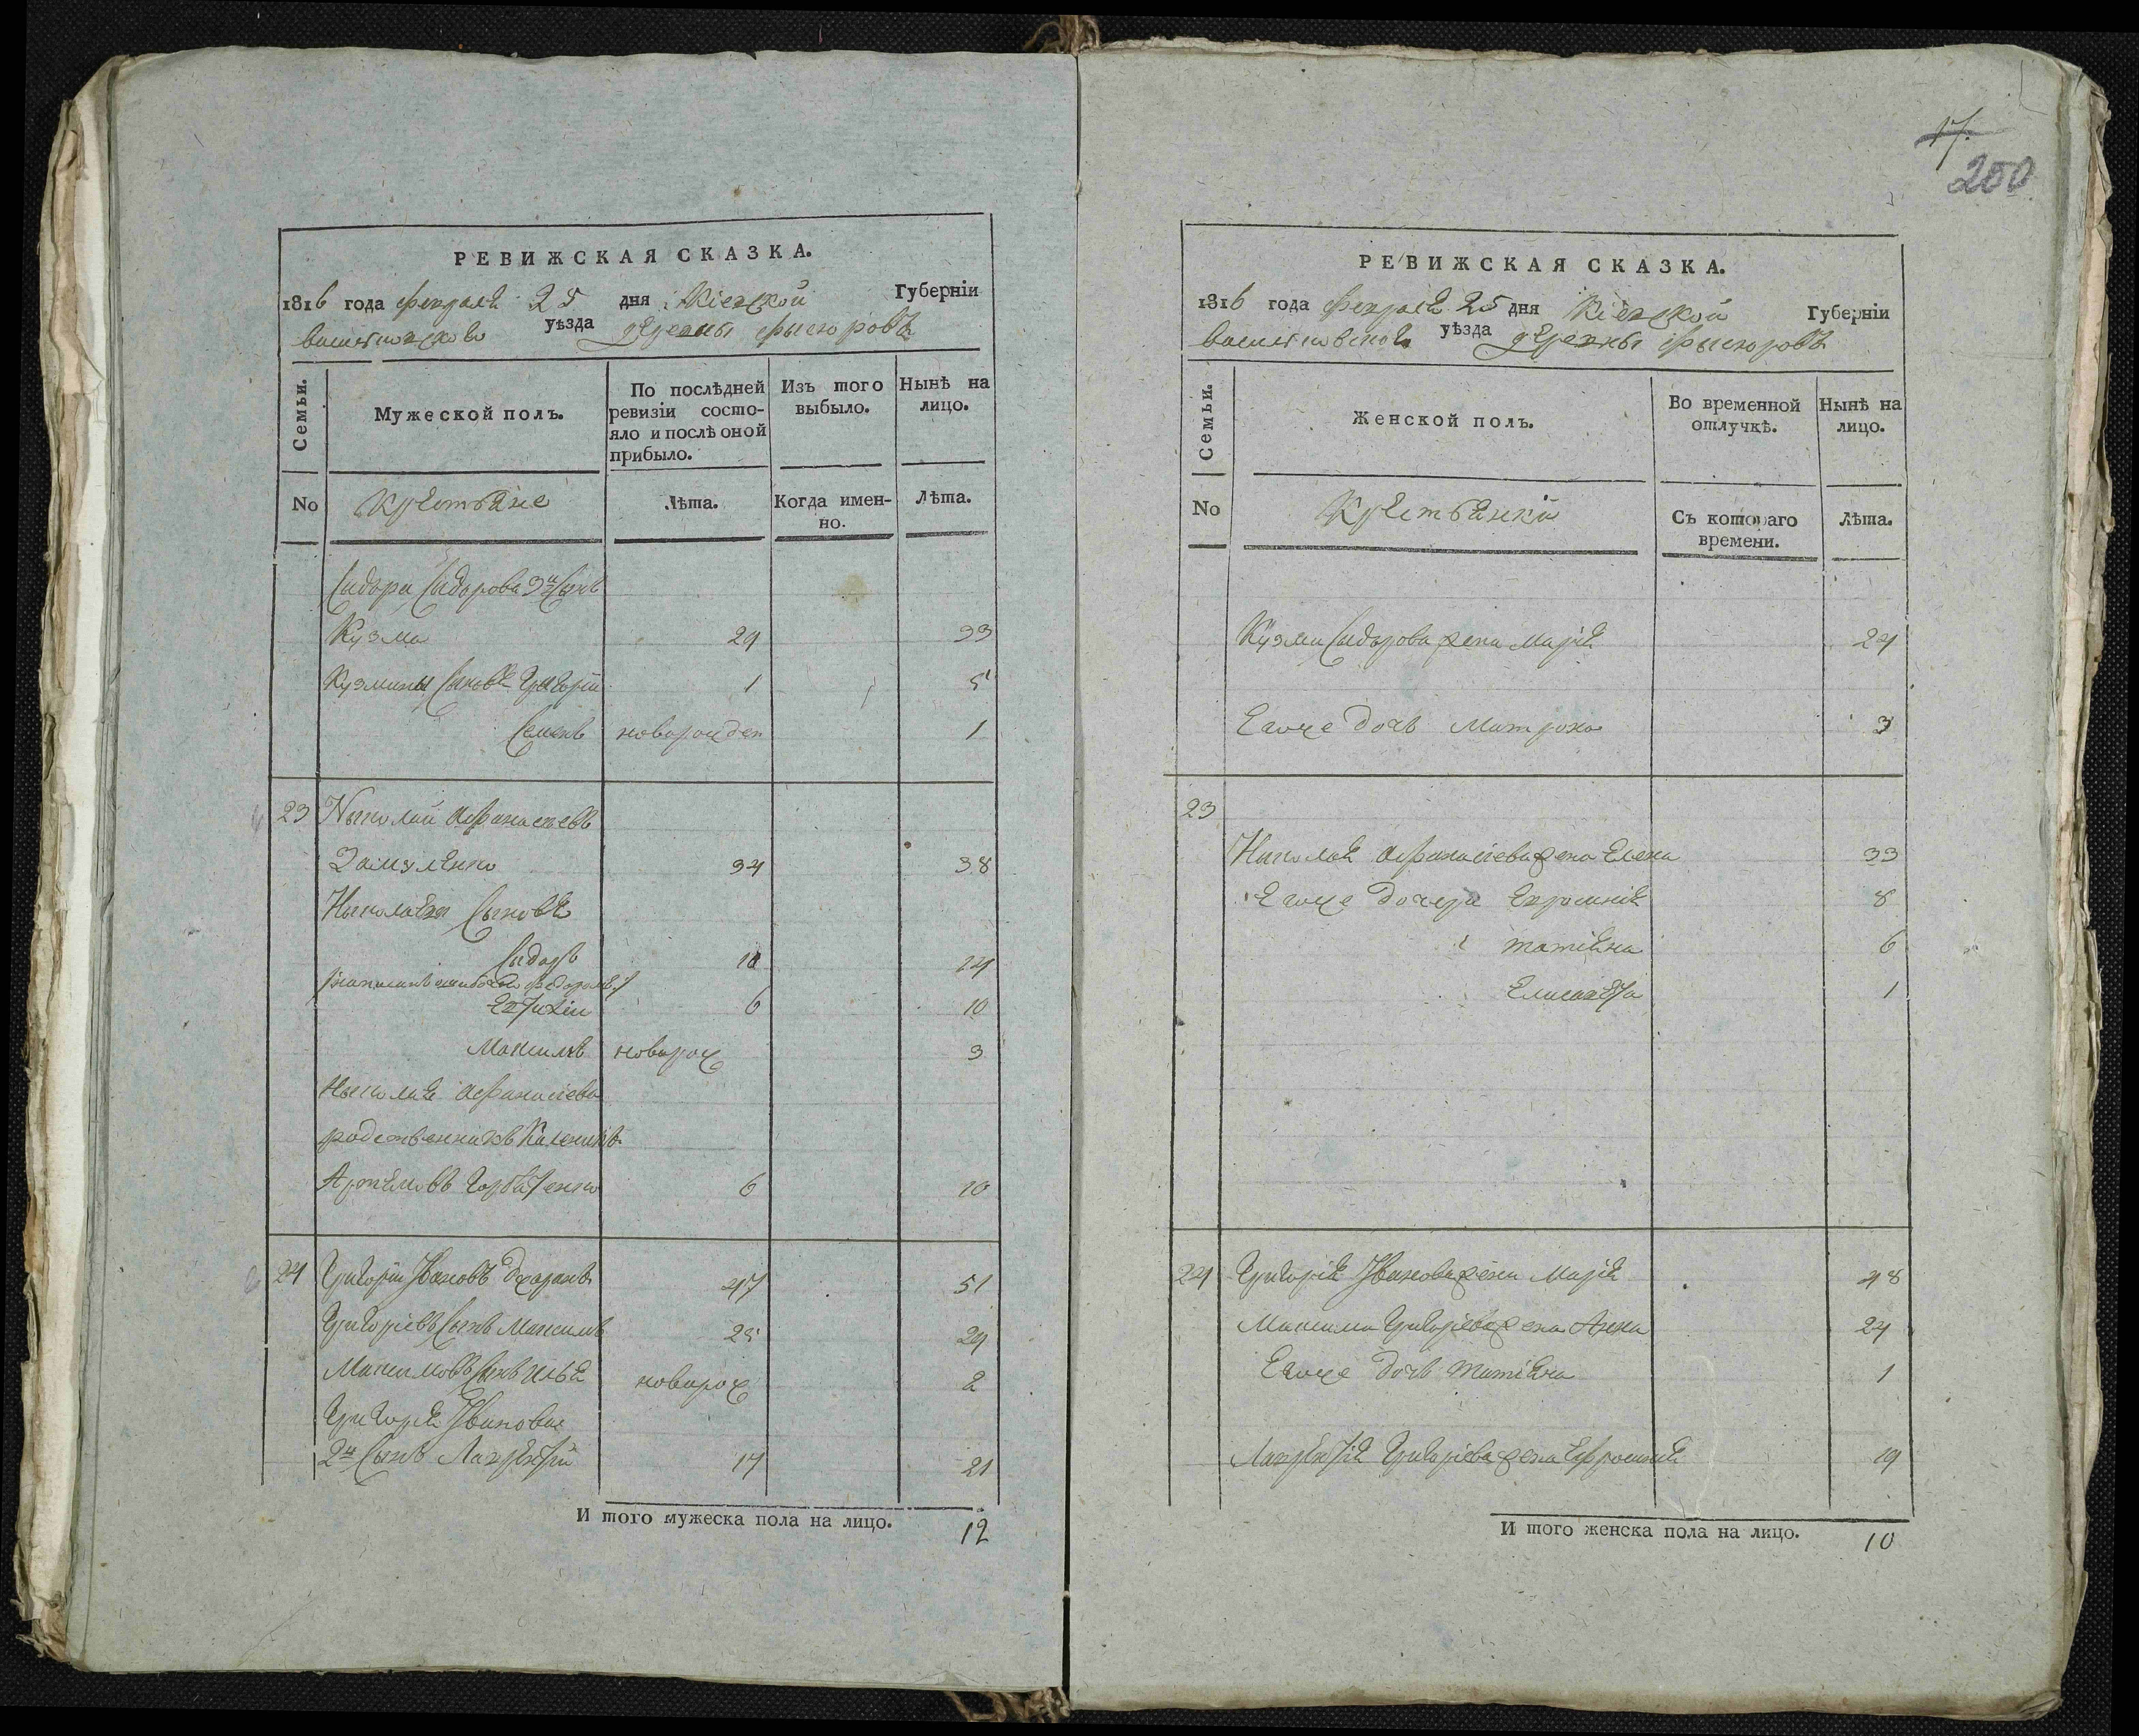 РЕВИЖСКАЯ СКАЗКА.
1816 года февраля 25 дня Кіевской Губерніи
васильковского уѣзда деревны
Семьи.
Мужеской полъ.
По послѣдней ревизіи состо-
яло и послѣ оной
прибыло.
Изъ того
выбыло.
Нынѣ на
лицо.
No Крестьяне Лѣта. Когда имен-
но. Лѣта.
Сидора Сидорова 3й Сынъ
Кузма 29 33
Кузмины Сыновья Григорій 1 5
Семенъ новорожден 1
23 Николай Афанасьевъ
34 38
Николаевы Сыновья
Сидоръ 10 14
6 10
Максимъ новорож 3
Николая Афанасіева
родственникъ
6 10
24 Григорій Ивановъ 47 51
Григоріевъ Сынъ Максимъ 25 29
Максимовъ Сынъ Илья новорож 2
Григорія Иванова
2й Сынъ Лаврентій 17 21
И того мужеска пола на лицо. 12
17.
250
РЕВИЖСКАЯ СКАЗКА.
1816 года февраля 25 дня Кіевской Губерніи
васильковского уѣзда деревны
Семьи.
Женской полъ.
Во временной
отлучкѣ.
Нынѣ на
лицо.
No Крестьянки Съ котораго
времени. Лѣта.
Кузмы Сидорова жена Марія 24
Егоже дочь Матрона 3
23
Николая Афанасіева жена Елена 33
Егоже дочери Евросинія 8
татіяна 6
Елисавета 1
24 Григорія Иванова жена Марія 48
Максима Григоріева жена Анна 24
Егоже дочь татіяна 1
Лаврентія Григоріева жена Ефросинія 19
И того женска пола на лицо. 10